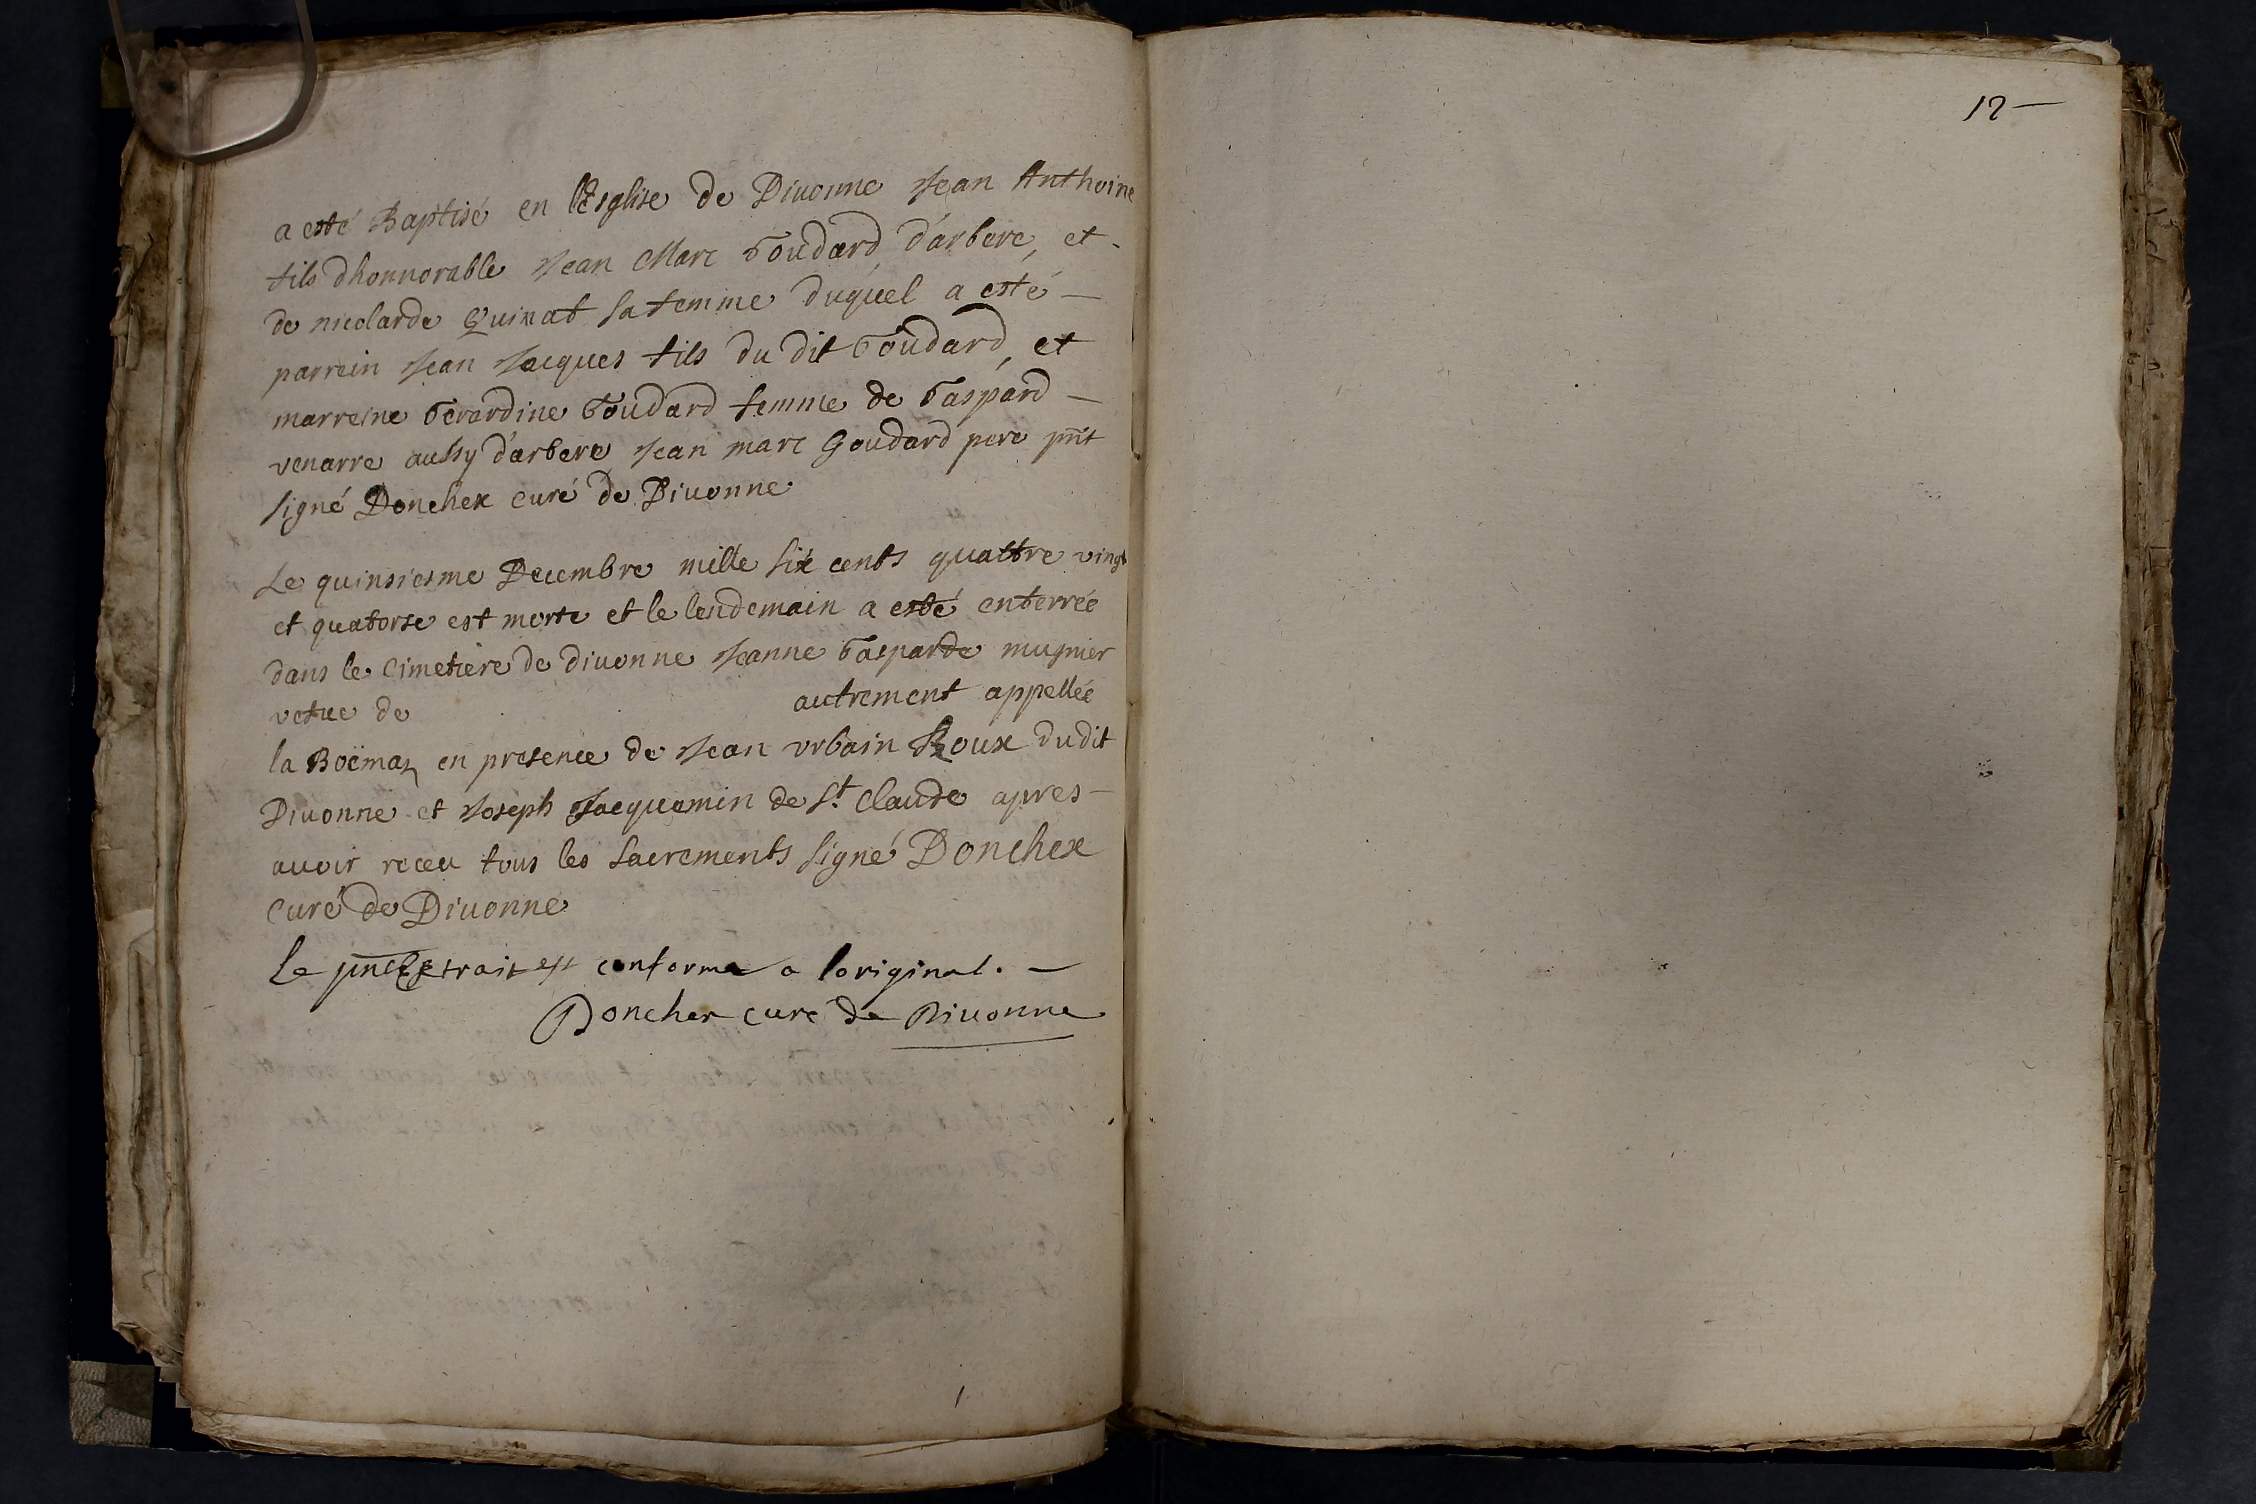 a esté Baptisé en l'Esglise de Diuonne Jean Anthoine
fils dhonnorable Jean Marc Goudard d'arbere, et
de nicolarde Quinat sa femme duquel a esté
parrein Jean Jacques fils du dit Goudard, et
marreine Gerardine Goudard femme de Gaspard
venarre aussy d'arbere Jean marc Goudard pere pnt
signé Donchex curé de Diuonne
Le quinsiesme Decembre mille six cents quattre vingt
et quatorse est morte et le lendemain a esté enterrée
dans le Cimetiere de diuonne Jeanne Gasparde mugnier
vefue de autrement appellée
la Boëmaz en presence de Jean vrbain Roux dudit
Diuonne et Joseph Jacquemin de St. Claude apres
auoir receu tous les Sacrements signé Donchex
Curé de Diuonne
Le pnt Extrait est conforme a loriginal.
Donchex curé de Diuonne
12